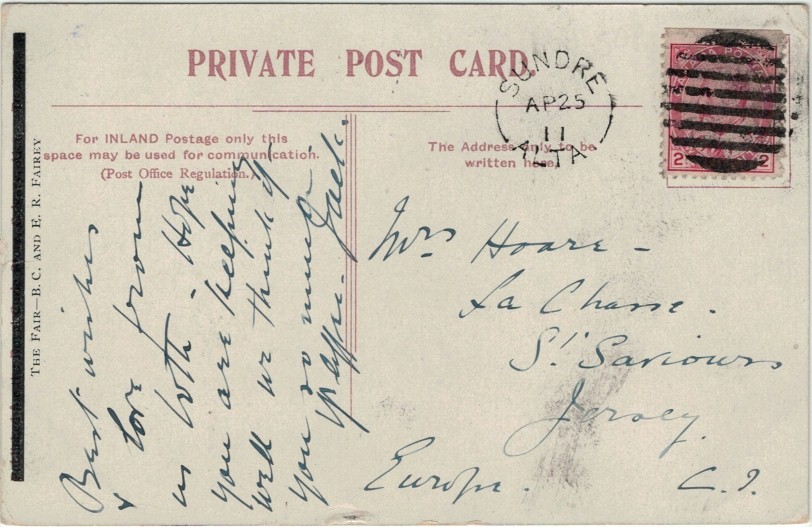 PRIVATE POST CARD.
SUNDRE
AP 25
11
ALTA
CANADA POSTAGE
2 2
For INLAND Postage only this
space may be used for communication.
(Post Office Regulation.)
The Address only to be
written here.
THE FAIR—B. C. AND E. R. FAIREY
Best wishes
& love from
us both - Hope
you are keeping
well we think of
you so much.
Jack.
Mrs Hoare -
La Chasse.
St. Saviours
Jersey.
Europe. C.I.